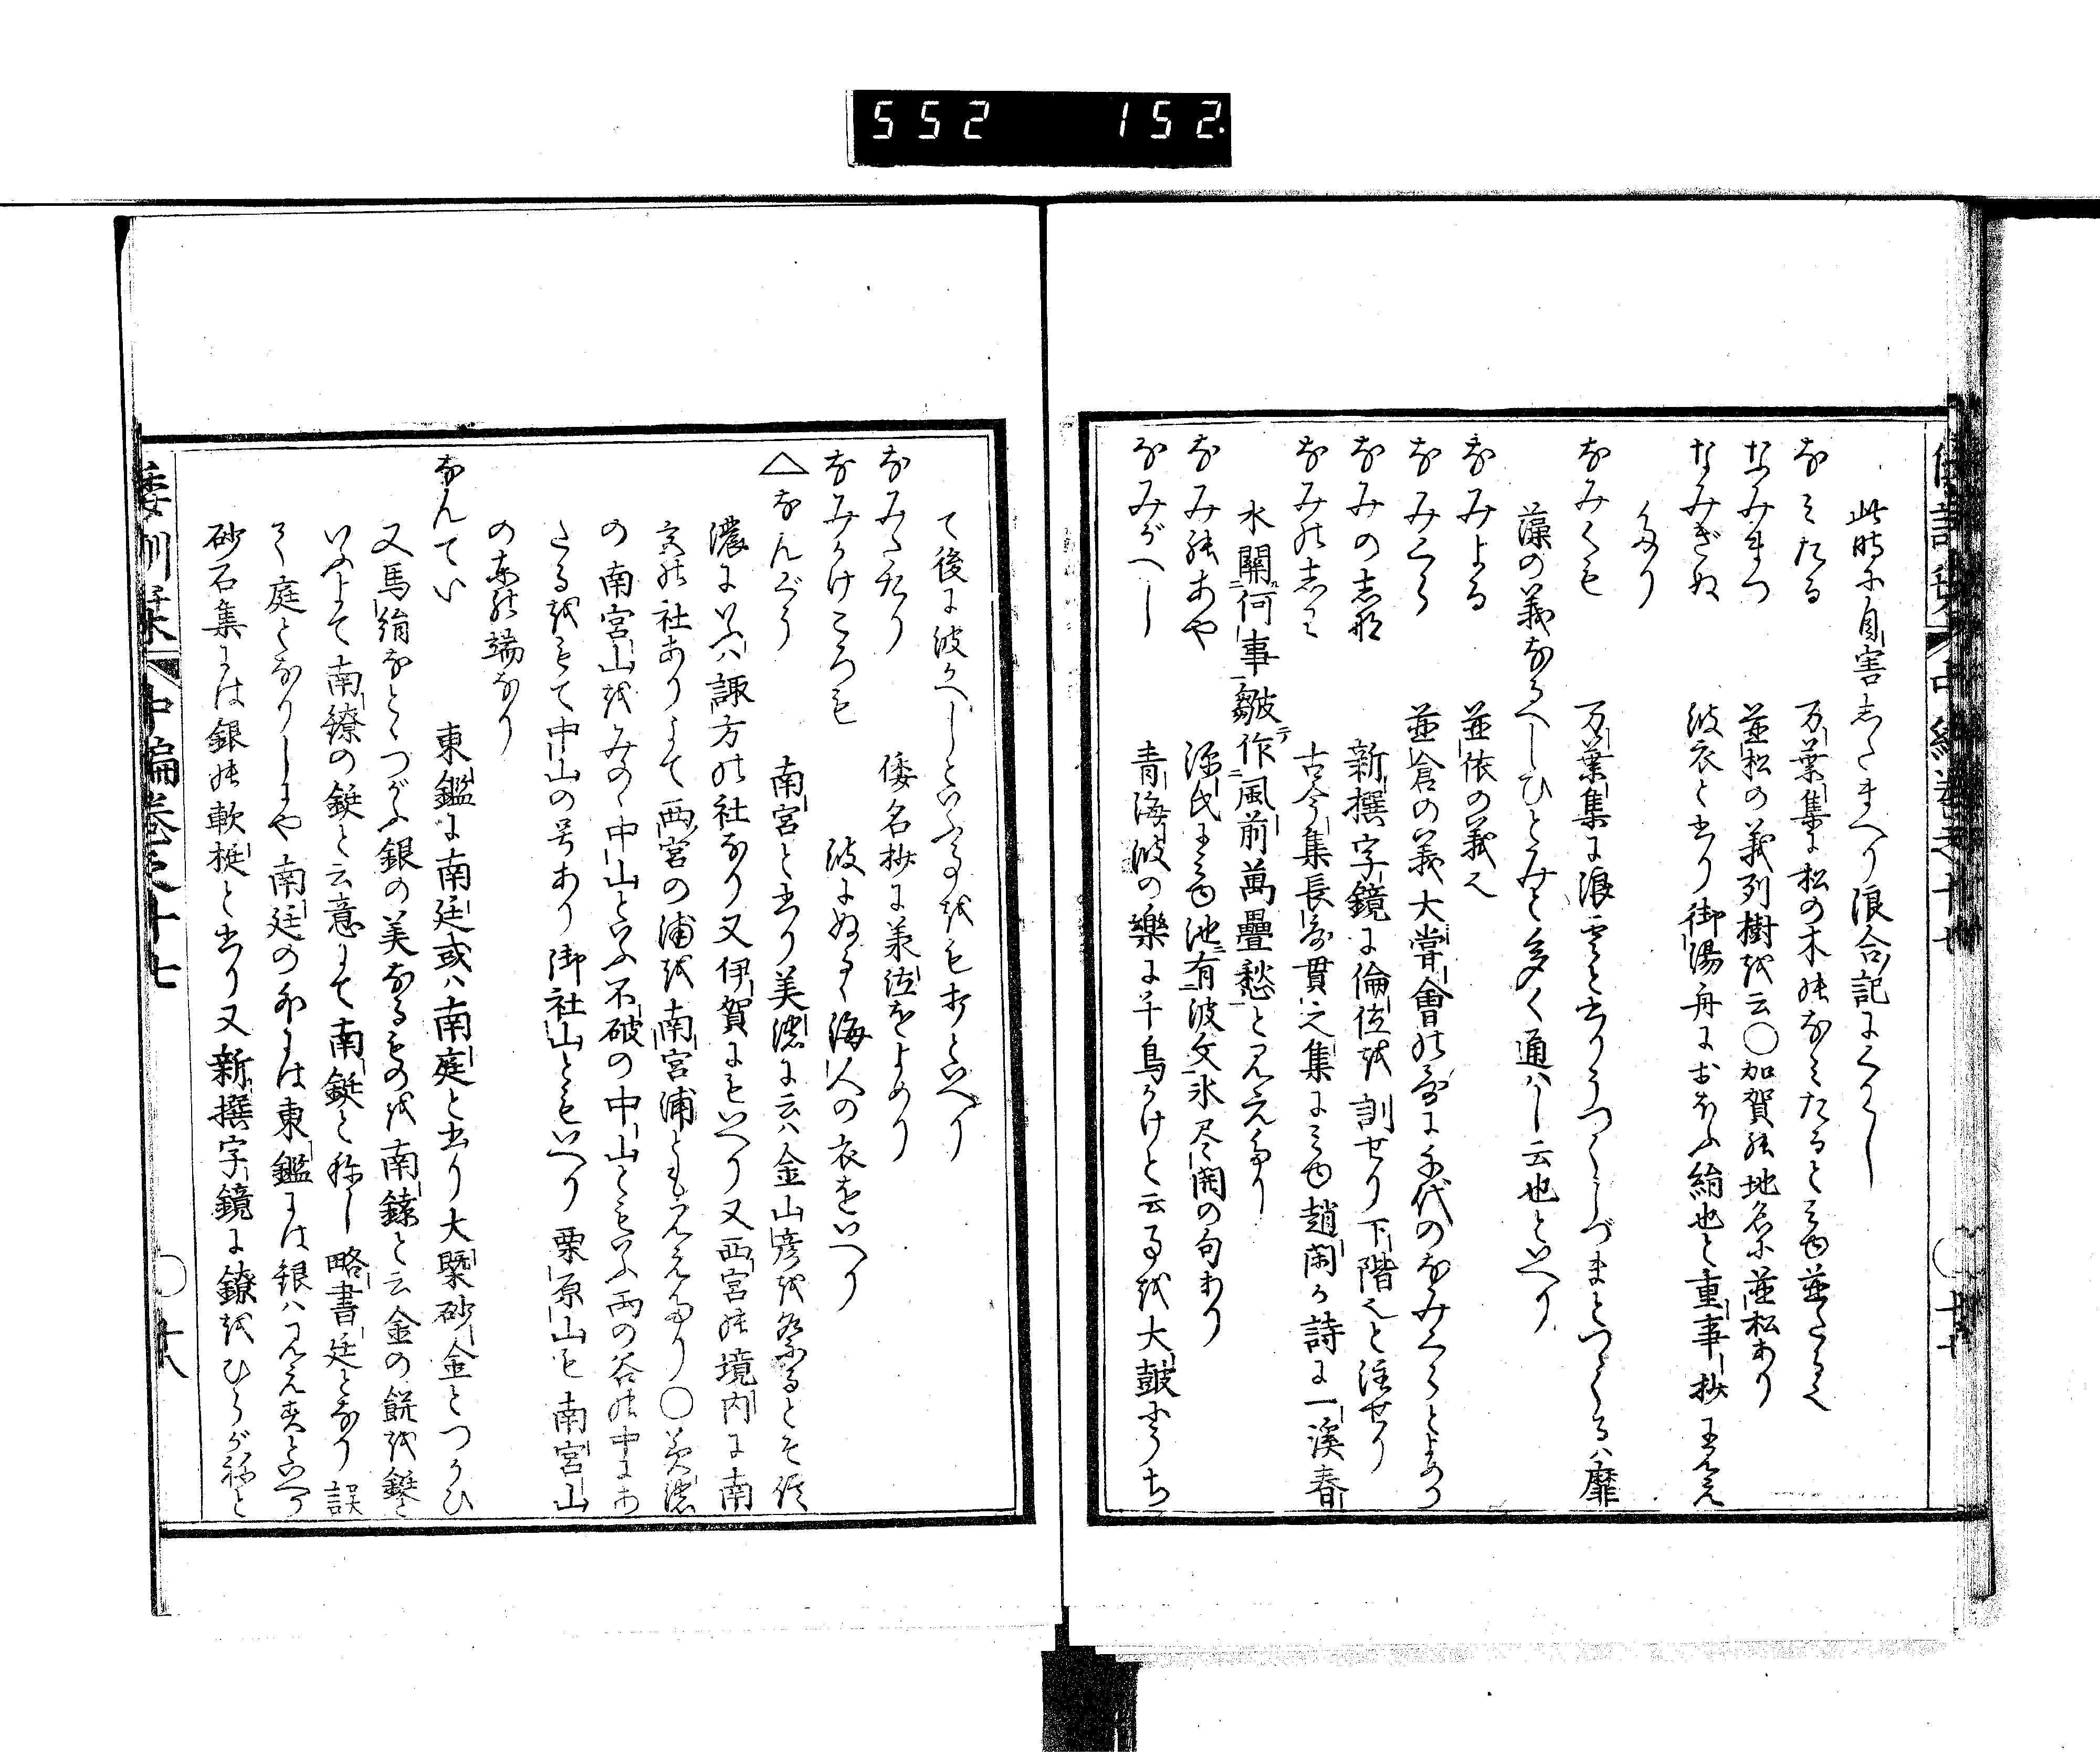 552 152
此時に自害したまへり浪合記にくはし
なみたる 万葉集に松の木のなみたると見ゆ並たる也
なみまつ 並松の義列樹を云○加賀の地名に並松あり
なみぎぬ 波衣と書り御湯舟におほふ絹也と重事抄に見え
たり
なみくも 万葉集に浪雲と書りうつくしづまとつゞくるハ靡
藻の義なるへしひとみと多く通ハし云也といへり
なみよる 並依の義也
なみくら 並倉の義大嘗會の哥に千代のなみくらとよめり
なみのしな 新撰字鏡に倫伍を訓せり下階也と注せり
なみのしわ 古今集長哥貫之集に見ゆ趙閑か詩に一溪春
水關何事皺作風前萬疊愁と見えたり
なみのあや 源氏に見ゆ池有波文氷尽開の句あり
なみがへし 青海波の樂に千鳥かけと云事を大鼓にうち
て後に波かへしといふ事をもすといへり
なみたたり 倭名抄に業佐をよめり
なみかけころも 波にぬるゝ海人の衣をいへり
△なんぐう 南宮と書り美濃に云ハ金山彦を祭るとそ信
濃にいふハ諏方の社なり又伊賀にもいへり又西宮の境内に南
宮の社ありよて西宮の浦を南宮浦とも見えたり○美濃
の南宮山をみのゝ中山といふ不破の中山ともいふ両の谷の中にあ
たるをもて中山の号あり御社山ともいへり栗原山も南宮山
の東の端なり
なんてい 東鑑に南廷或ハ南庭と書り大槩砂金とつかひ
又馬絹なとゝつがふ銀の美なるものを南鐐と云金の餅を鋌と
いふよて南鐐の鋌と云意にて南鋌と称し略書廷となり誤
て庭となりしにや南廷の外には東鑑には銀ハ見え食といへり
砂石集には銀の軟挺と書り又新撰字鏡に鐐をひらがねと
倭訓栞 中編巻之十七 ○十八